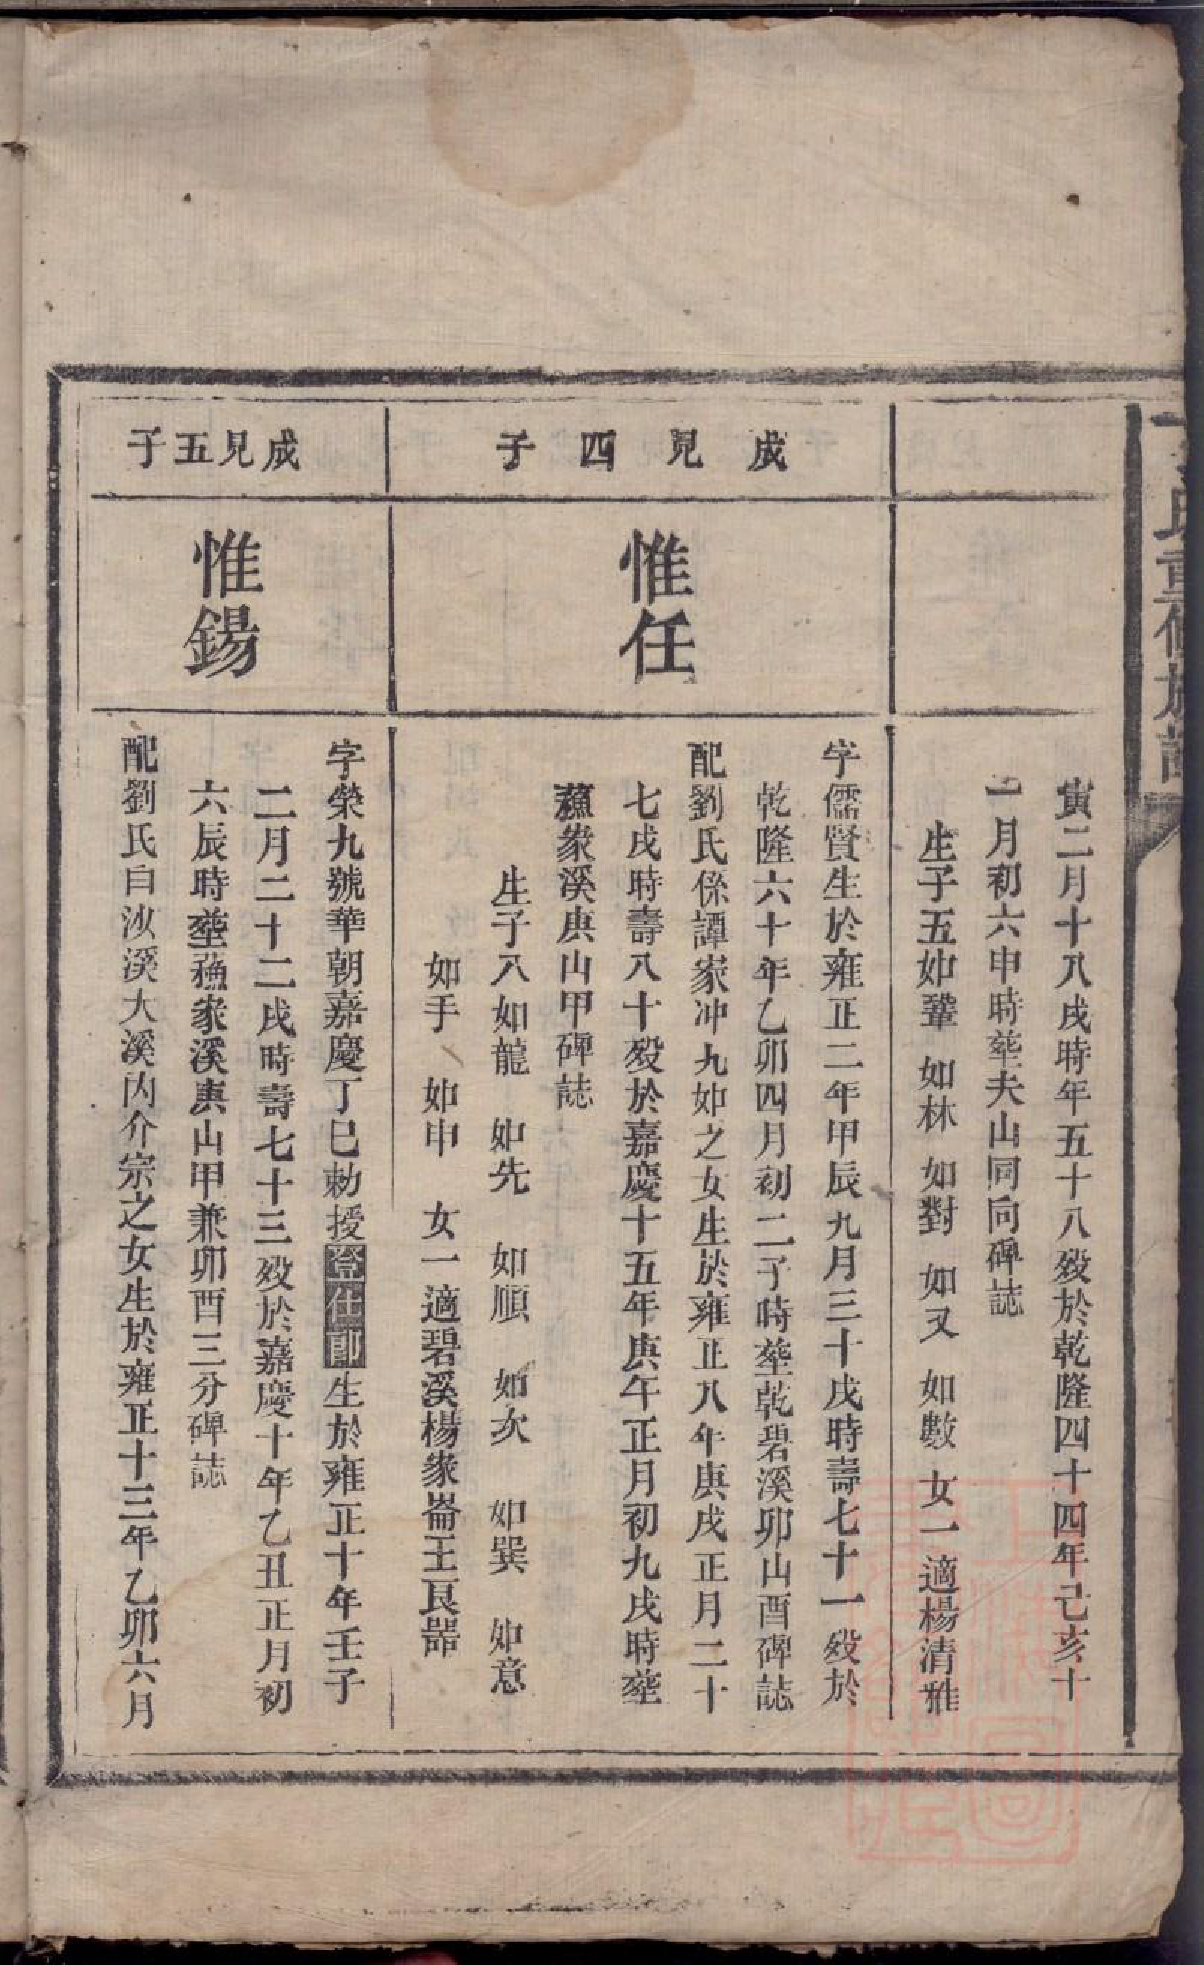 氏重修族譜
寅二月十八戌時年五十八歿於乾隆四十四年己亥十
一月初六申時塟夫山同向碑誌
生子五如鞏 如林 如對 如又 如數 女一適楊清雅
成見四子
惟任
字儒賢生於雍正二年甲辰九月三十戌時壽七十一歿於
乾隆六十年乙卯四月初二子時塟乾碧溪卯山酉碑誌
配劉氏係譚家冲九如之女生於雍正八年庚戌正月二十
七戌時壽八十歿於嘉慶十五年庚午正月初九戌時塟
蘓家溪庚山甲碑誌
生子八如龍 如先 如順 如次 如巽 如意
如手 如申 女一適碧溪楊家崙王良噐
成見五子
惟鍚
字榮九號華朝嘉慶丁巳勅授登仕郎生於雍正十年壬子
二月二十二戌時壽七十三歿於嘉慶十年乙丑正月初
六辰時塟蘓家溪庚山甲兼卯酉三分碑誌
配劉氏白沙溪大溪內介宗之女生於雍正十三年乙卯六月